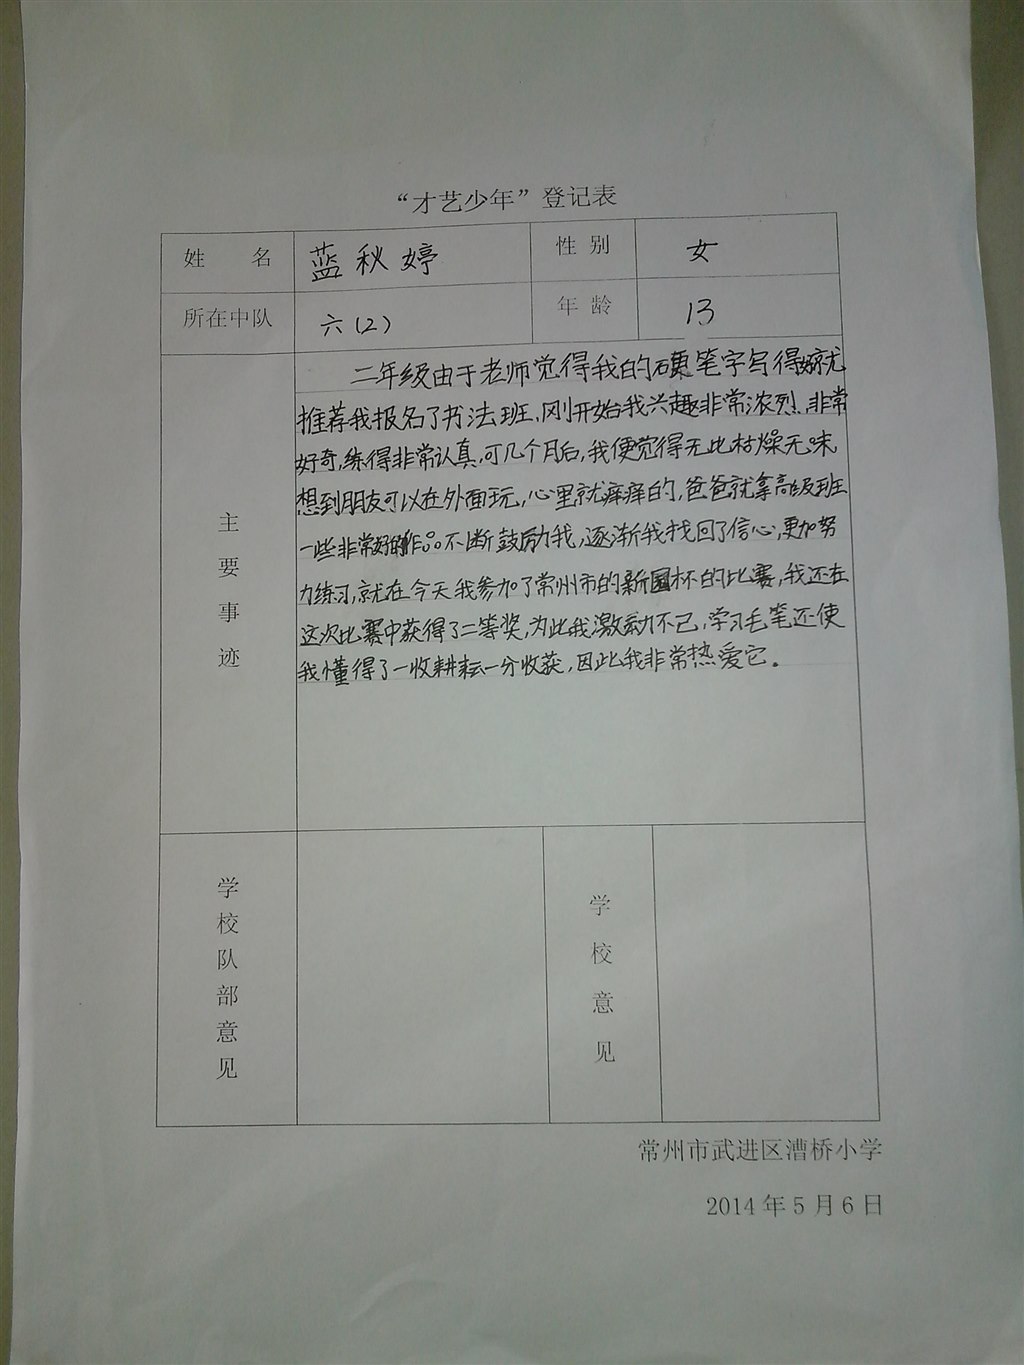 “才艺少年”登记表
姓 名 蓝秋婷 性别 女
所在中队 六(2) 年龄 13
主要事迹
二年级由于老师觉得我的硬笔字写得好就
推荐我报名了书法班,刚开始我兴趣非常浓烈,非常
好奇,练得非常认真,可几个月后,我便觉得无比枯燥无味
想到朋友可以在外面玩,心里就痒痒的,爸爸就拿高级班
一些非常好的作品不断鼓励我,逐渐我找回了信心,更加努
力练习,就在今天我参加了常州市的新国杯的比赛,我还在
这次比赛中获得了二等奖,为此我激动不已,学习毛笔还使
我懂得了一收耕耘一分收获,因此我非常热爱它。
学校队部意见
学校意见
常州市武进区漕桥小学
2014年5月6日